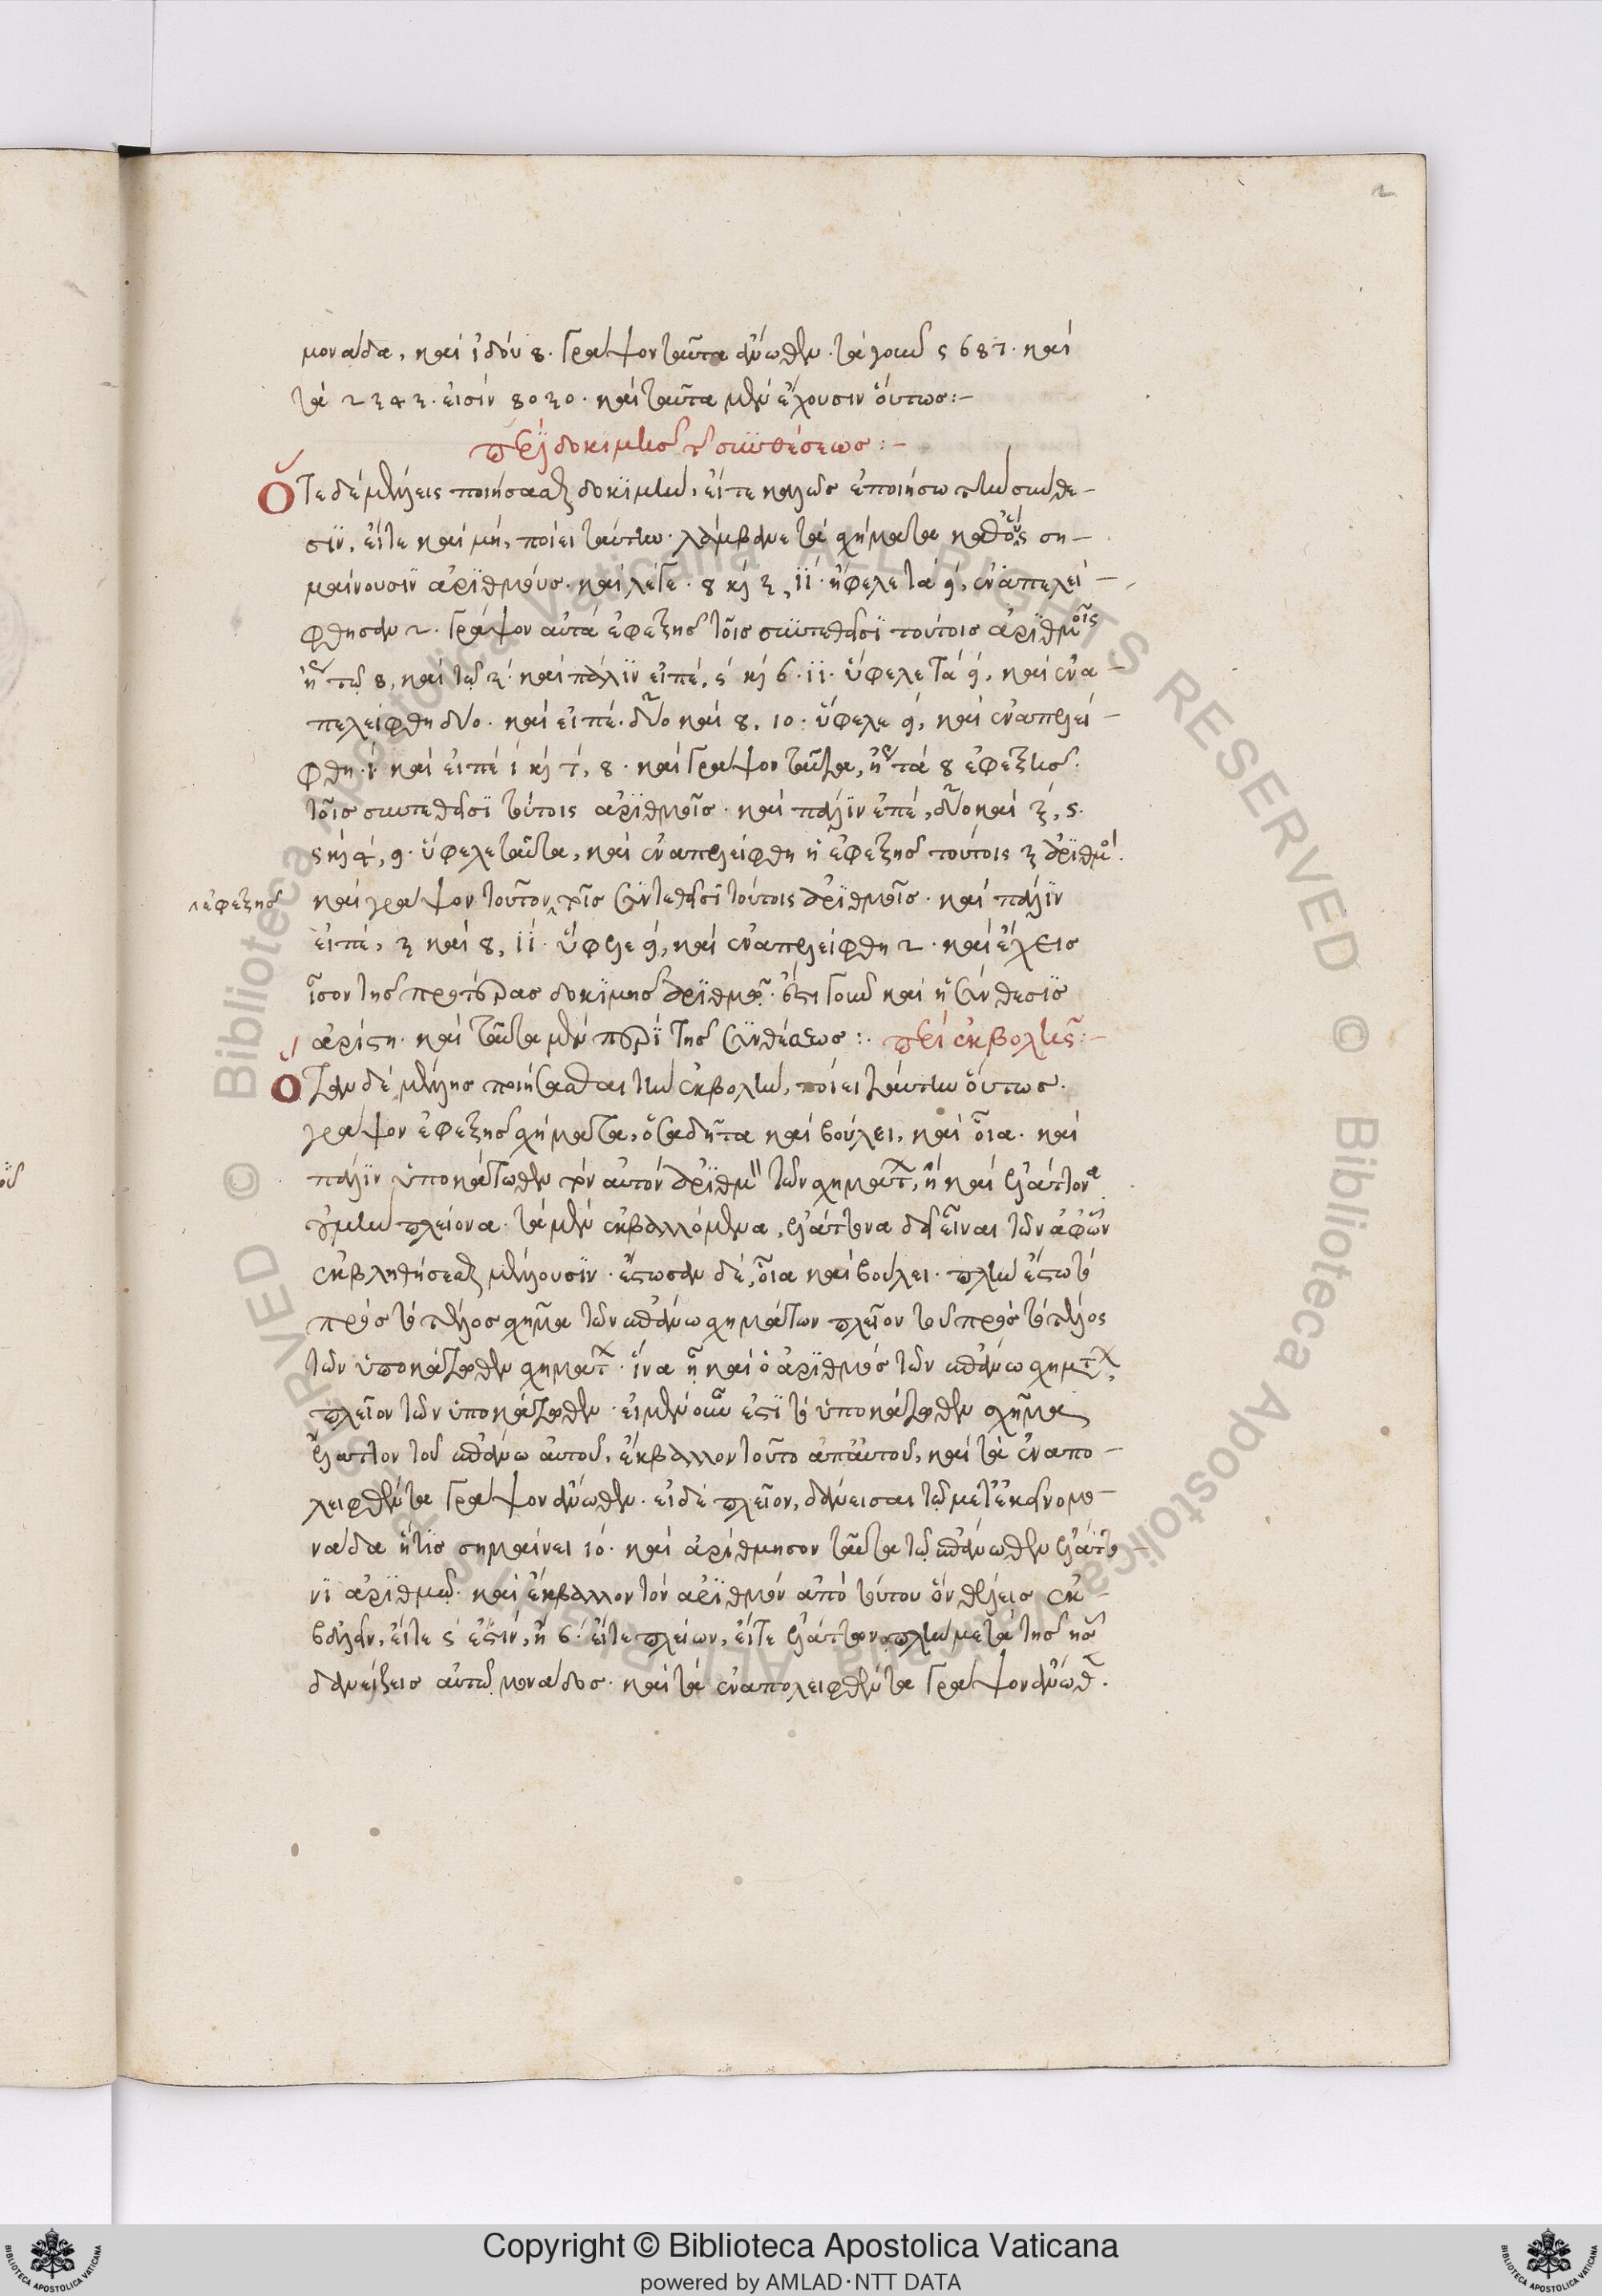 2
μονάδα, καὶ ἰδού 8. γράψον ταῦτα ἄνωθεν. τὰ γοῦν 5687. καὶ
τὰ 2343. εἰσὶν 8030. καὶ ταῦτα μὲν ἔχουσιν οὕτως:-
περὶ δοκιμῆς τῆς συνθέσεως:-
Ὅτε δὲ μέλλεις ποιήσασθαι δοκιμὴν, εἴτε καλῶς ἐποίησω τὴν σύνθε-
σιν, εἴτε καὶ μὴ, ποίει ταύτην. λάμβανε τὰ σχήματα καθ' οὓς ση-
μαίνουσιν ἀριθμούς. καὶ λέγε. 8 καὶ 3, 11. ὕφελε τὰ 9, ἐναπελεί-
φθησαν 2. γράψον αὐτὰ ἐφεξῆς τοῖς συντεθεῖσι τούτοις ἀριθμοῖς
ἤγουν τῷ 8, καὶ τῷ 3. καὶ πάλιν εἰπέ, 5 καὶ 6. 11. ὕφελε τὰ 9, καὶ ἐνα-
πελείφθη δύο. καὶ εἰπέ. δύο καὶ 8, 10. ὕφελε 9, καὶ ἐναπελεί-
φθη. 1 καὶ εἰπέ 1 καὶ 7, 8. καὶ γράψον ταῦτα, ἤγουν τὰ 8 ἐφεξῆς.
τοῖς συντεθεῖσι τούτοις ἀριθμοῖς. καὶ πάλιν εἰπέ, δύο καὶ 3, 5.
5 καὶ 4, 9. ὕφελε ταῦτα, καὶ ἐναπελείφθη ὁ ἐφεξῆς τούτοις 3 ἀριθμός.
ἐφεξῆς
καὶ γράψον τοῦτον τοῖς συντεθεῖσι τούτοις ἀριθμοῖς. καὶ πάλιν
εἰπέ, 3 καὶ 8, 11. ὕφελε 9, καὶ ἐναπελείφθη 2. καὶ ἔχεις
ἴσον τῆς προτέρας δοκιμῆς ἀριθμόν. ἔστι γοῦν καὶ ἡ σύνθεσις
ἀρίστη. καὶ ταῦτα μὲν περὶ τῆς συνθέσεως:. περὶ ἐκβολῆς:-
Ὅταν δὲ μέλλῃς ποιήσασθαι τὴν ἐκβολὴν, ποίει ταύτην οὕτως.
γράψον ἐφεξῆς σχήματα, ὅσα δῆτα καὶ βούλει, καὶ οἷα. καὶ
πάλιν ὑποκάτωθεν τὸν αὐτὸν ἀριθμὸν τῶν σχημάτων, ἢ καὶ ἐλάττονα
οὐμὴν πλείονα. τὰ μὲν ἐκβαλλόμενα, ἐλάττονα δεῖ εἶναι τῶν ἀφ' ὧν
ἐκβληθήσεσθαι μέλλουσιν. ἔστωσαν δέ, οἷα καὶ βούλει. πλὴν ἔστω τὸ
πρὸς τὸ τέλος σχῆμα τῶν ἐπάνω σχημάτων πλεῖον τοῦ πρὸς τὸ τέλος
τῶν ὑποκάτωθεν σχημάτων. ἵνα ᾖ καὶ ὁ ἀριθμὸς τῶν ἐπάνω σχημάτων,
πλεῖον τῶν ὑποκάτωθεν. εἰ μὲν οὖν ἐστὶ τὸ ὑποκάτωθεν σχῆμα
ἔλαττον τοῦ ἐπάνω αὐτοῦ, ἔκβαλλον τοῦτο ἀπ' αὐτοῦ, καὶ τὰ ἐναπο-
λειφθέντα γράψον ἄνωθεν. εἰ δὲ πλεῖον, δάνεισαι τῷ μετ' ἐκεῖνο μο-
νάδα ἥτις σημαίνει 10. καὶ ἀρίθμησον ταῦτα τῷ ἐπάνωθεν ἐλάττο-
νι ἀριθμῷ. καὶ ἔκβαλλον τὸν ἀριθμὸν ἀπὸ τούτου ὃν θέλεις ἐκ-
βαλεῖν, εἴτε 5 ἐστὶν, ἢ 6. εἴτε πλείων, εἴτε ἐλάττων, πλὴν μετὰ τῆς ἧς
δανείζεις αὐτῷ μονάδος. καὶ τὰ ἐναπολειφθέντα γράψον ἄνωθεν.
Copyright © Biblioteca Apostolica Vaticana
powered by AMLAD·NTT DATA